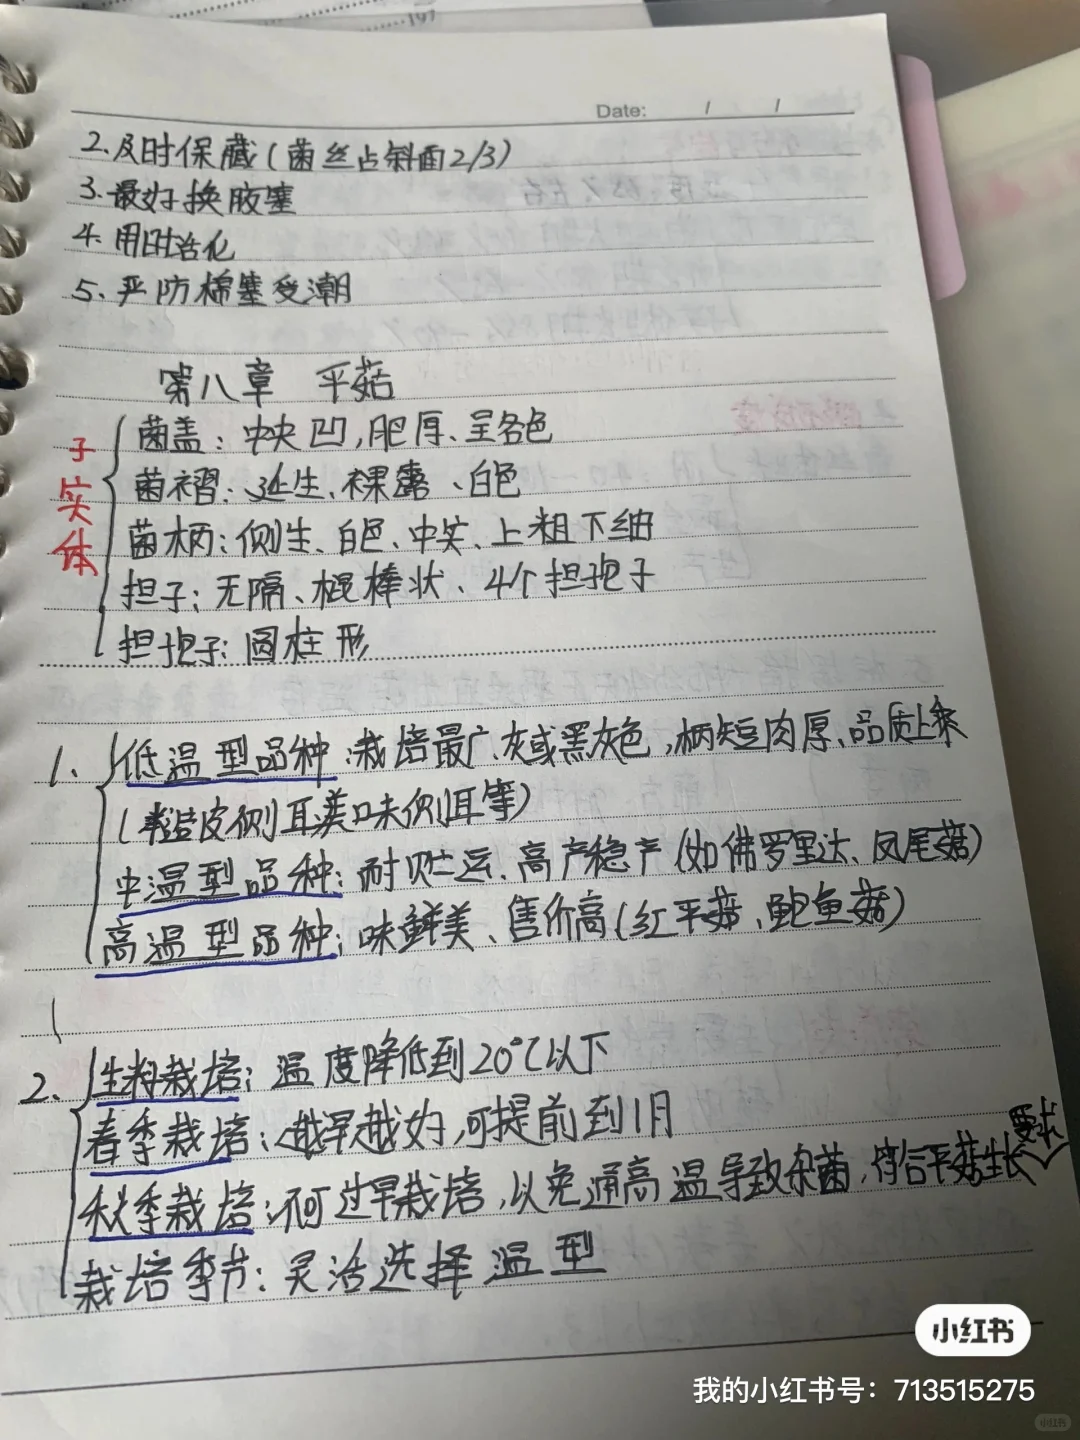 197
Date: / /
2.及时保藏(菌丝占斜面2/3)
3.最好换胶塞
4.用时活化
5.严防棉塞受潮
第八章 平菇
子实体
菌盖:中央凹,肥厚、呈各色
菌褶:延生、裸露、白色
菌柄:侧生、白色、中实、上粗下细
担子:无隔、棍棒状、4个担孢子
担孢子:圆柱形
1.低温型品种:栽培最广,灰或黑灰色,柄短肉厚、品质上乘
(糙皮侧耳美味侧耳等)
中温型品种:耐贮运、高产稳产(如佛罗里达、凤尾菇)
高温型品种:味鲜美、售价高(红平菇、鲍鱼菇)
2.生料栽培:温度降低到20℃以下
春季栽培:越早越好,可提前到1月
秋季栽培:不可过早栽培,以免遇高温导致杂菌,符合平菇生长要求
栽培季节:灵活选择温型
小红书
我的小红书号:713515275
小红书